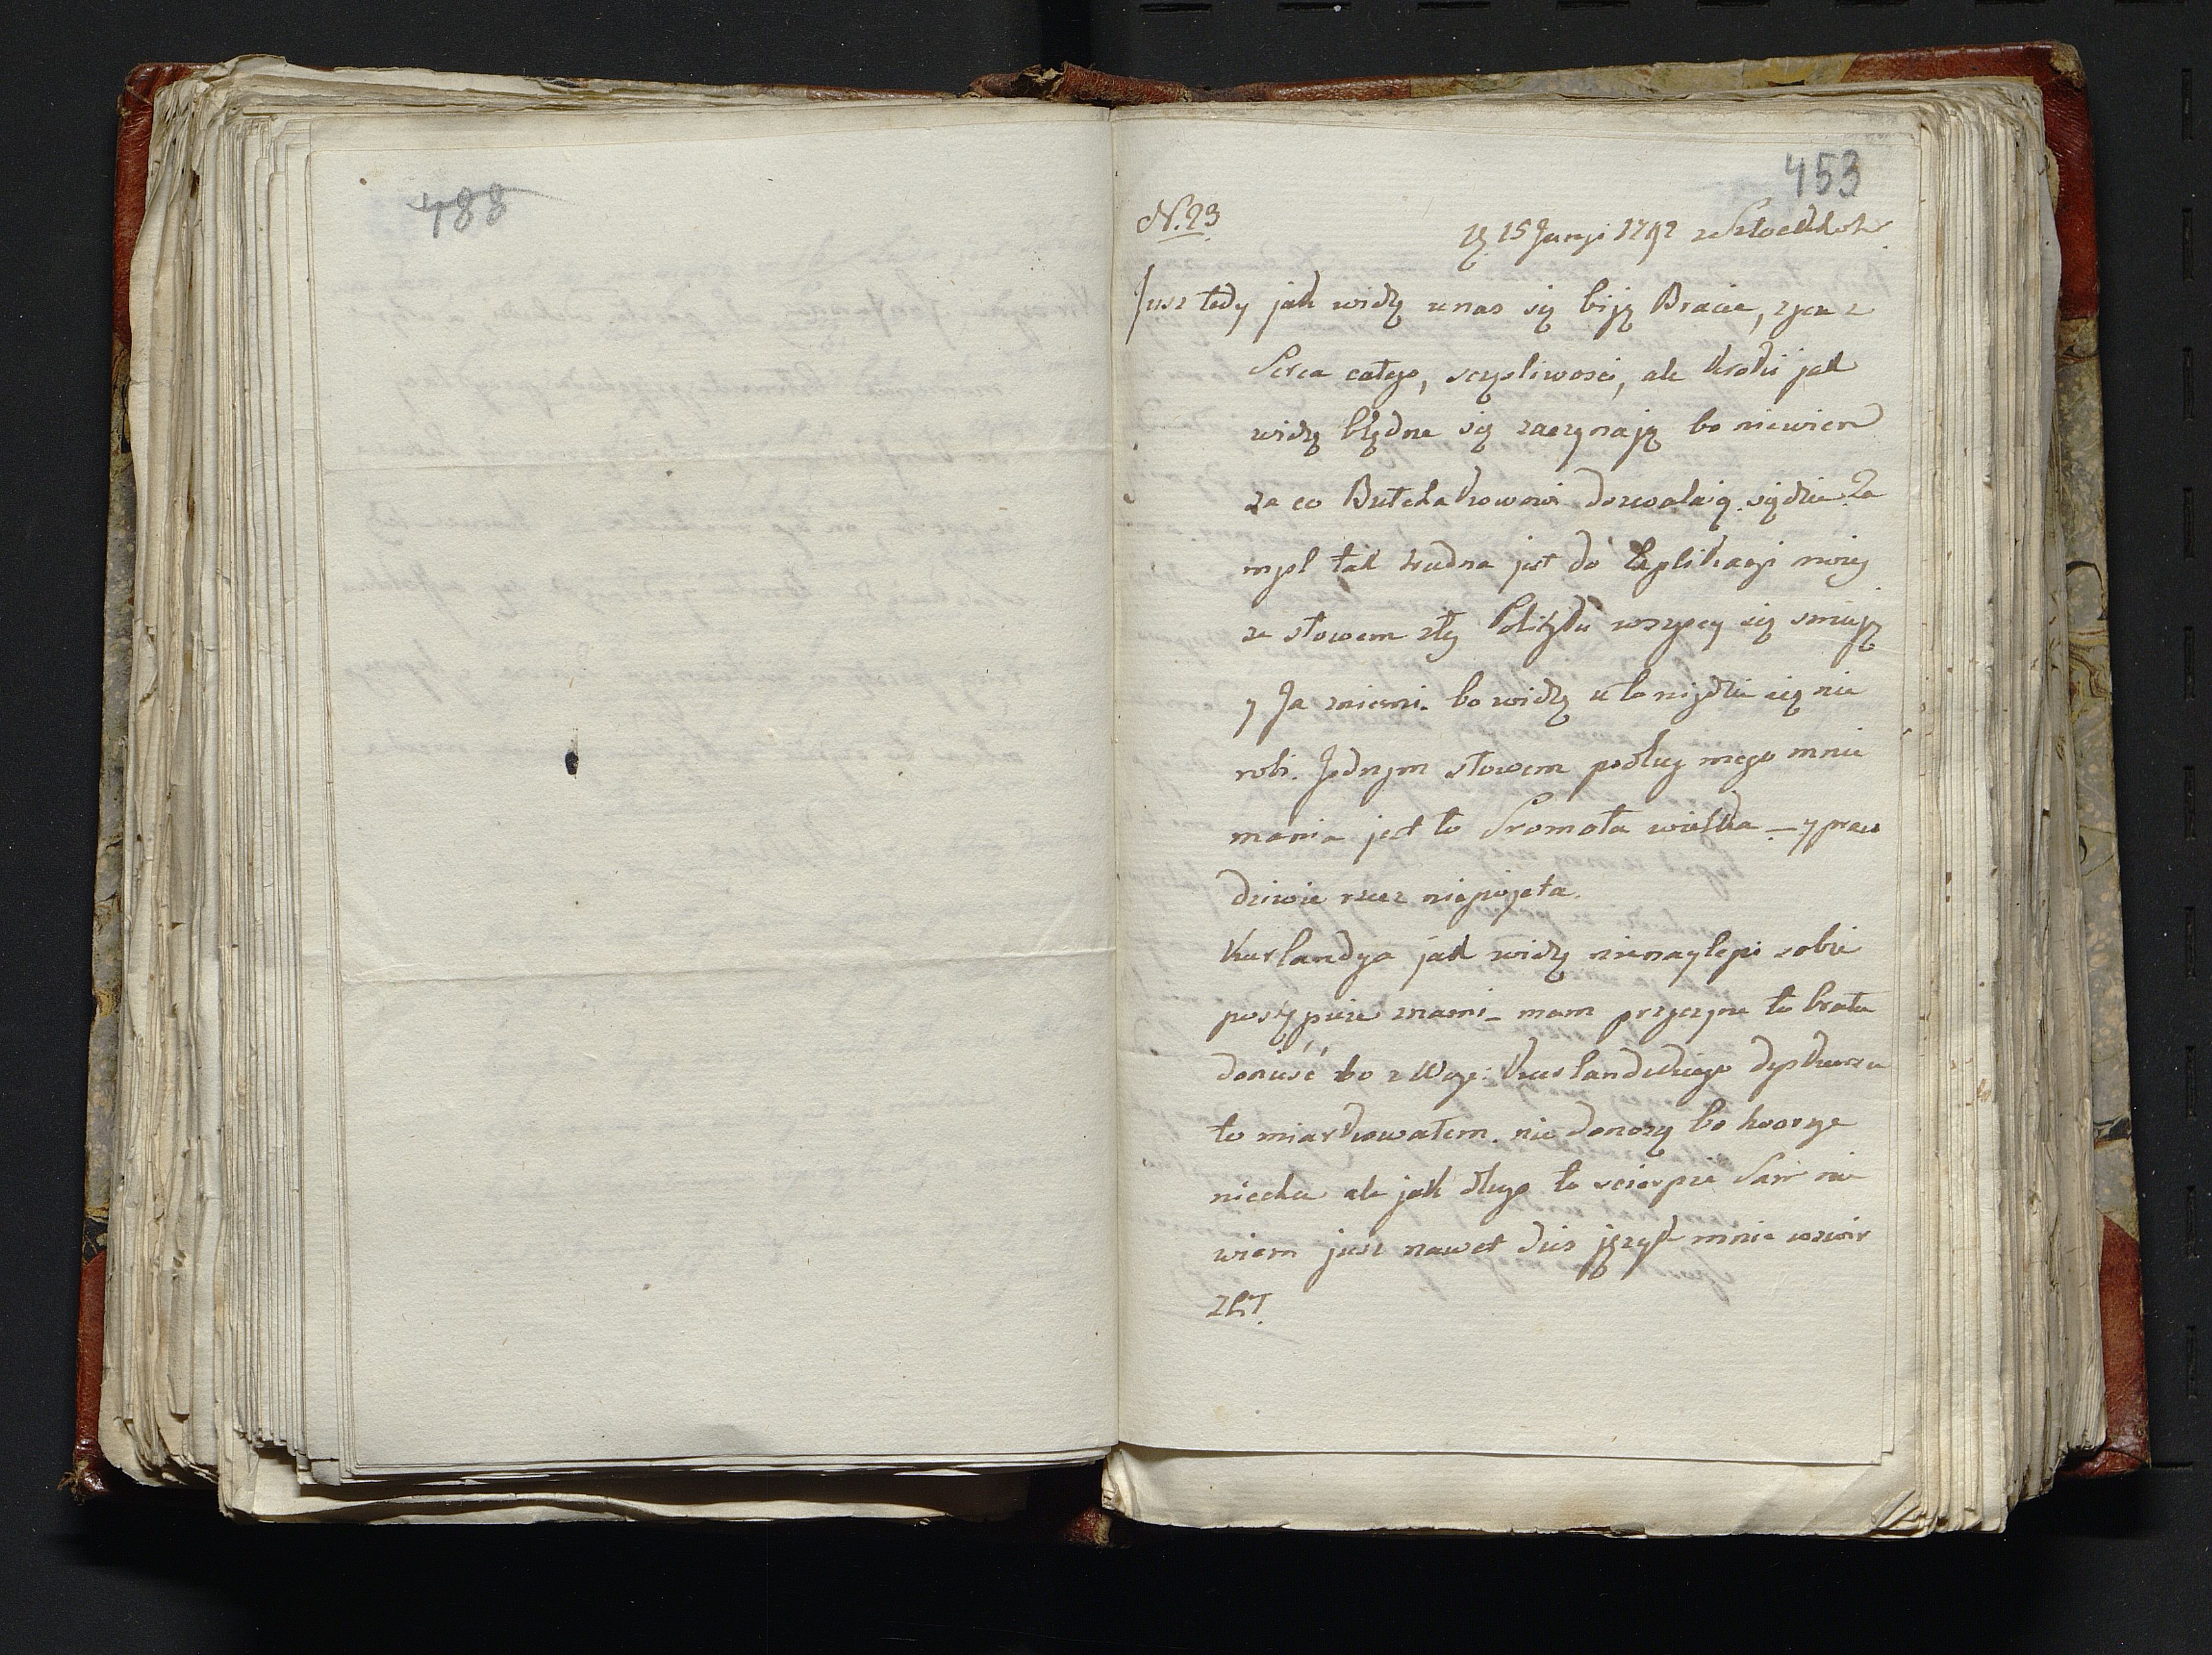 488
453
N. 23
15 Junyi 1792 ze Sztockhol
Jusz tedy jak widzę unas się biją Bracie, zycze z
Serca całego, sczęsliwosci, ale kroki jak
widzę błędne się zaczynają bo niewiem
za co Bułchakowowi dozwalaią siędzieć Ta
mysl tak trudna jest do Explikacyi moiey
ze słowem złey Polityki wszyscy się smieją
y Ja zniemi. bo widzę ze to nigdzie się nie
robi. Jednym słowem podług mego mnie
mania jest to Sromota wielka – y praw
dziwie rzecz niepojęta.
Kurlandya jak widzę nienaylepi sobie
postępuie znami – mam przyczyne to bratu
donieść bo z kurlandzkiego dyskursu
to miarkowałem. nie donoszę bo
niechce ale jak długo to scierpie Sam nie
wiem jusz nawet dzis język mnie